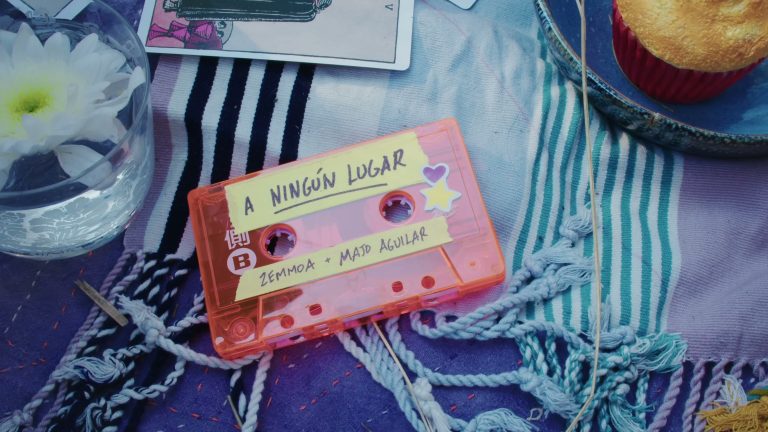 A NINGÚN LUGAR
側
B
ZEMMOA + MAJO AGUILAR